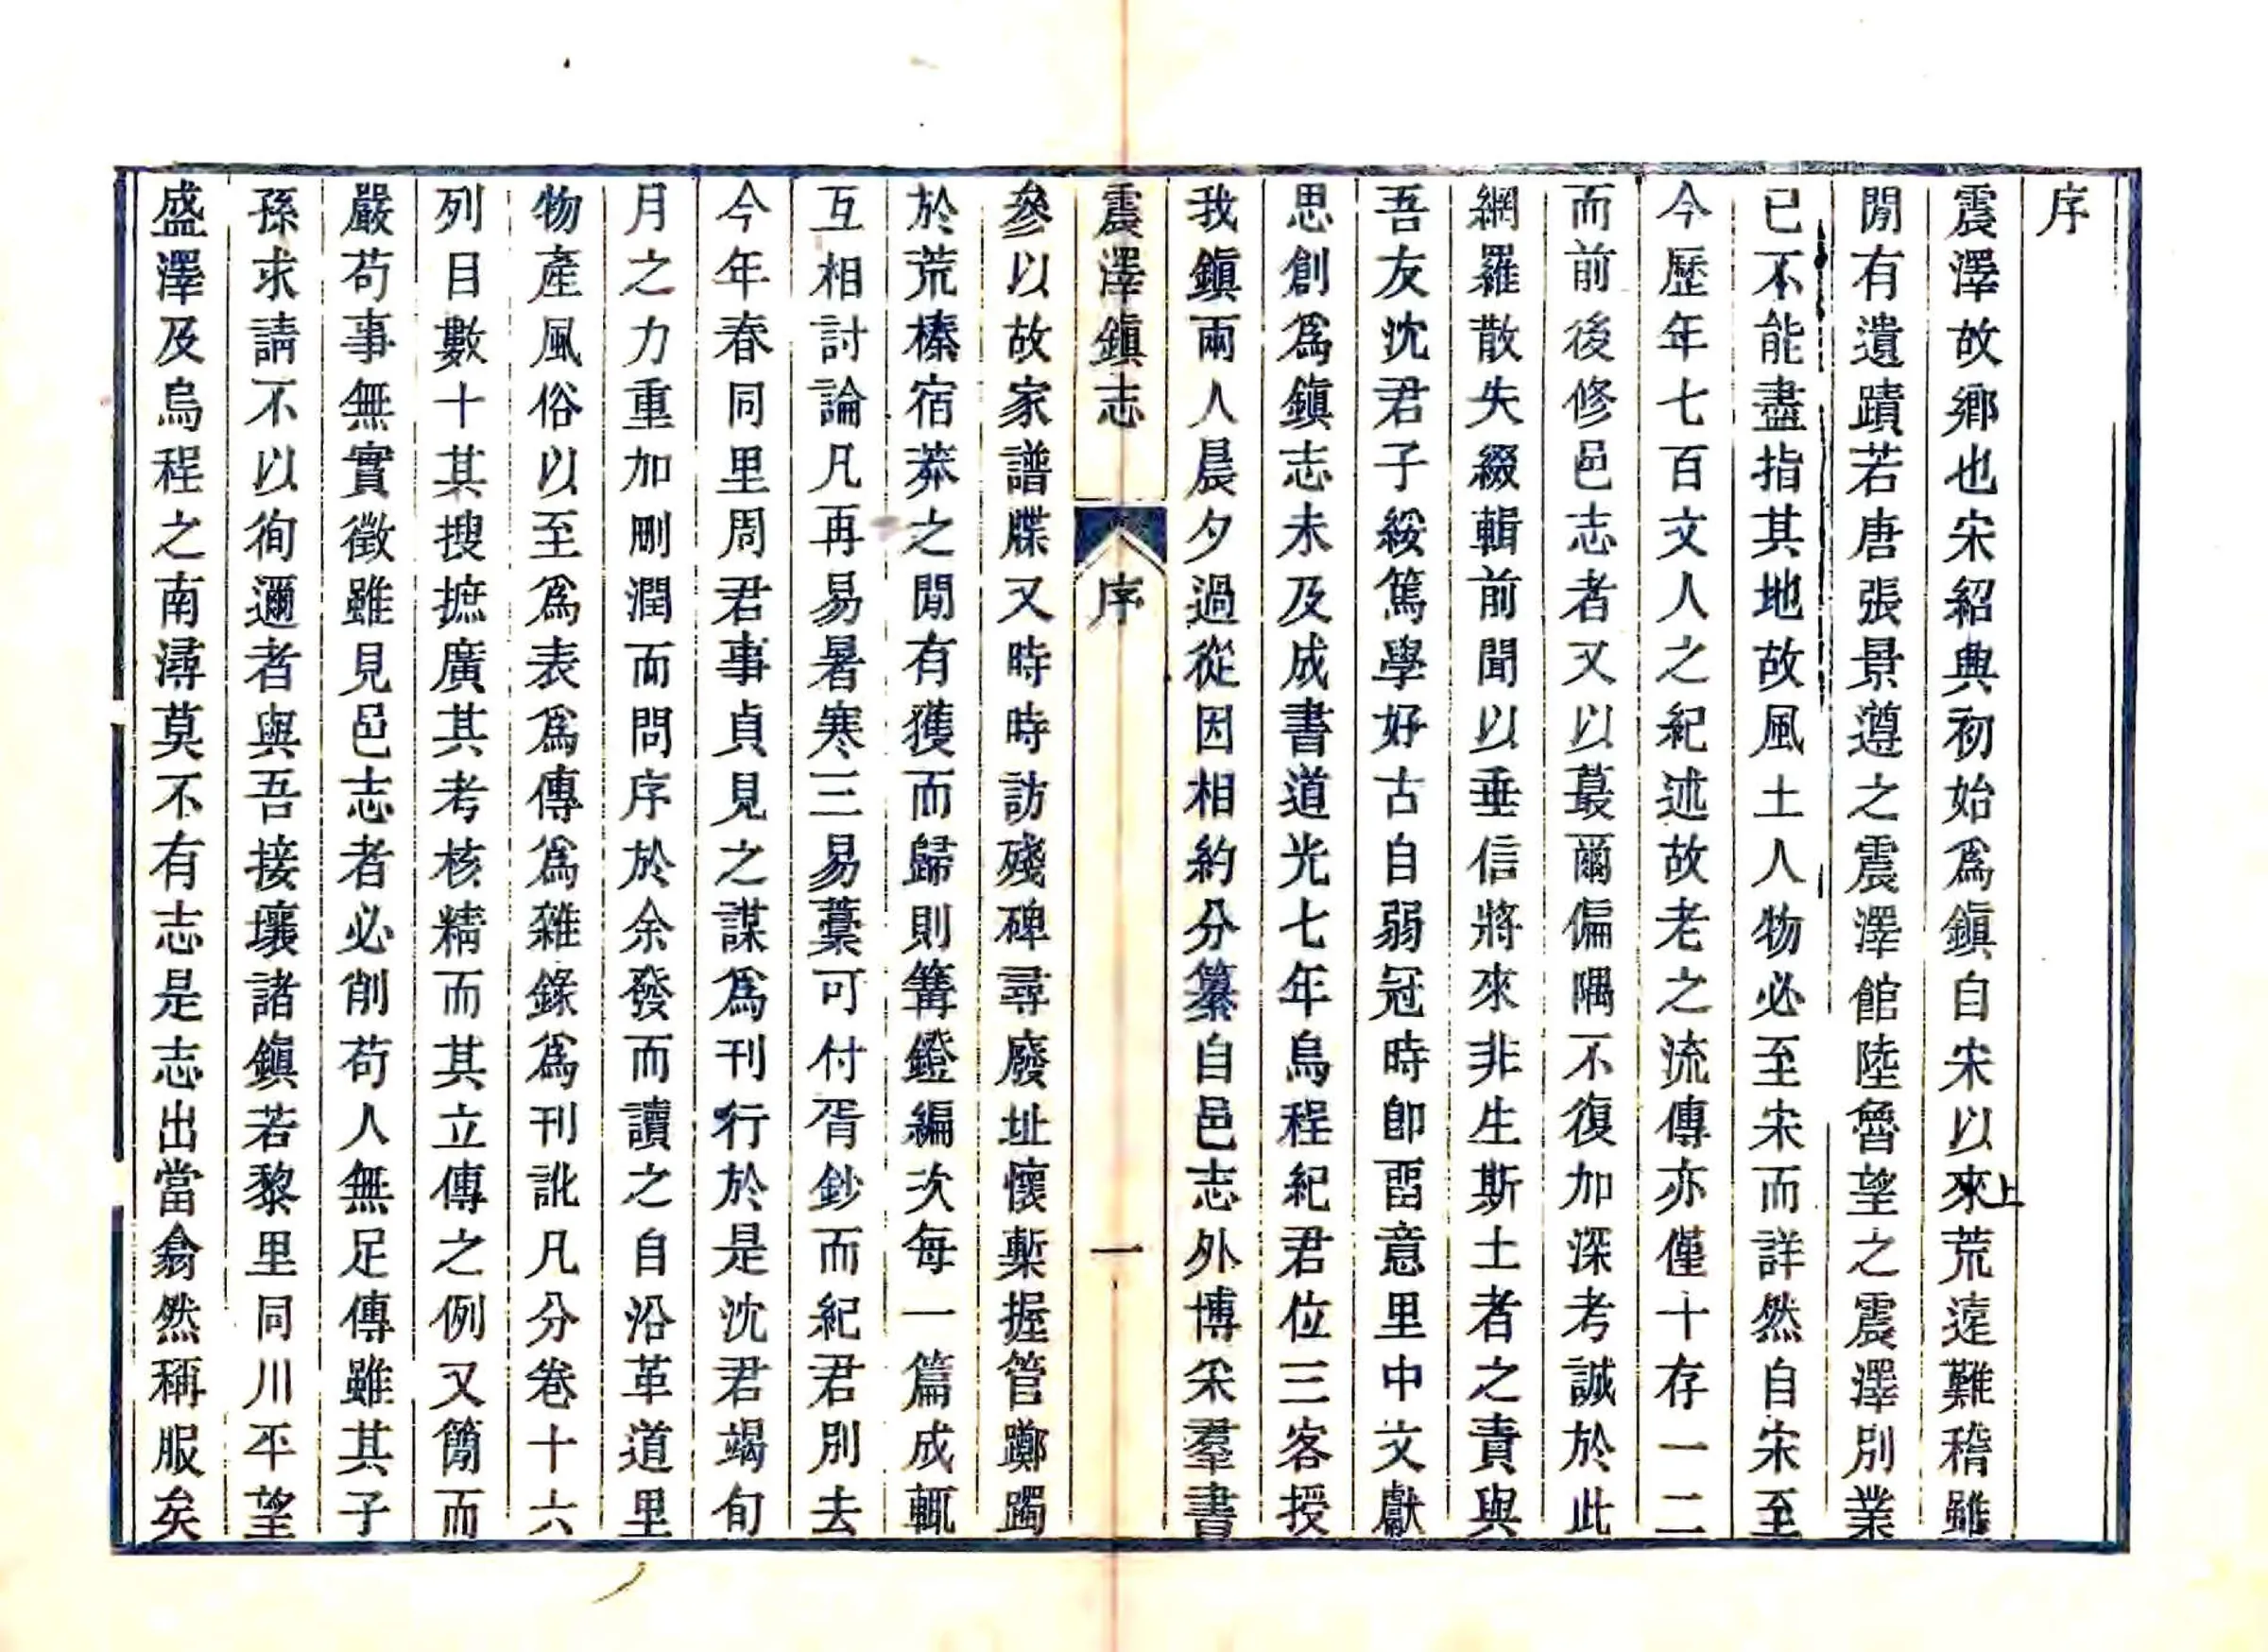 序
震澤故鄉也宋紹興初始爲鎮自宋以來上荒遠難稽雖
閒有遺蹟若唐張景遵之震澤館陸魯望之震澤別業
已不能盡指其地故風土人物必至宋而詳然自宋至
今歷年七百文人之紀述故老之流傳亦僅十存一二
而前後修邑志者又以蕞爾偏隅不復加深考誠於此
網羅散失綴輯前聞以垂信將來非生斯土者之責與
吾友沈君子綏篤學好古自弱冠時卽畱意里中文獻
思創爲鎮志未及成書道光七年烏程紀君位三客授
我鎮兩人晨夕過從因相約分纂自邑志外博采羣書
震澤鎮志 序 一
參以故家譜牒又時時訪殘碑尋廢址懷槧握管躑躅
於荒榛宿莽之閒有獲而歸則篝鐙編次每一篇成輒
互相討論凡再易暑寒三易藁可付胥鈔而紀君別去
今年春同里周君事貞見之謀爲刊行於是沈君竭旬
月之力重加刪潤而問序於余發而讀之自沿革道里
物產風俗以至爲表爲傳爲雜錄爲刊訛凡分卷十六
列目數十其搜摭廣其考核精而其立傳之例又簡而
嚴苟事無實徵雖見邑志者必削苟人無足傳雖其子
孫求請不以徇邇者與吾接壤諸鎮若黎里同川平望
盛澤及烏程之南潯莫不有志是志出當翕然稱服矣